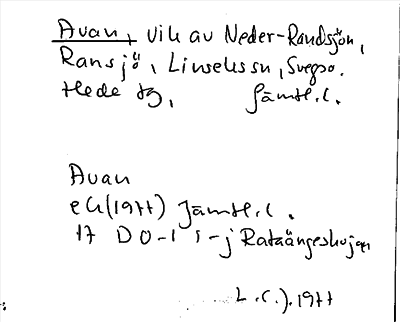 Avan, vik av Neder-Randsjön,
Ransjö, Linsells sn, Svegs o.
Hede tg, Jämtl. l.
Avan
ek (1977) Jämtl. l.
17 D 0-1 i-j Rataängeskojan
L.C.).1977